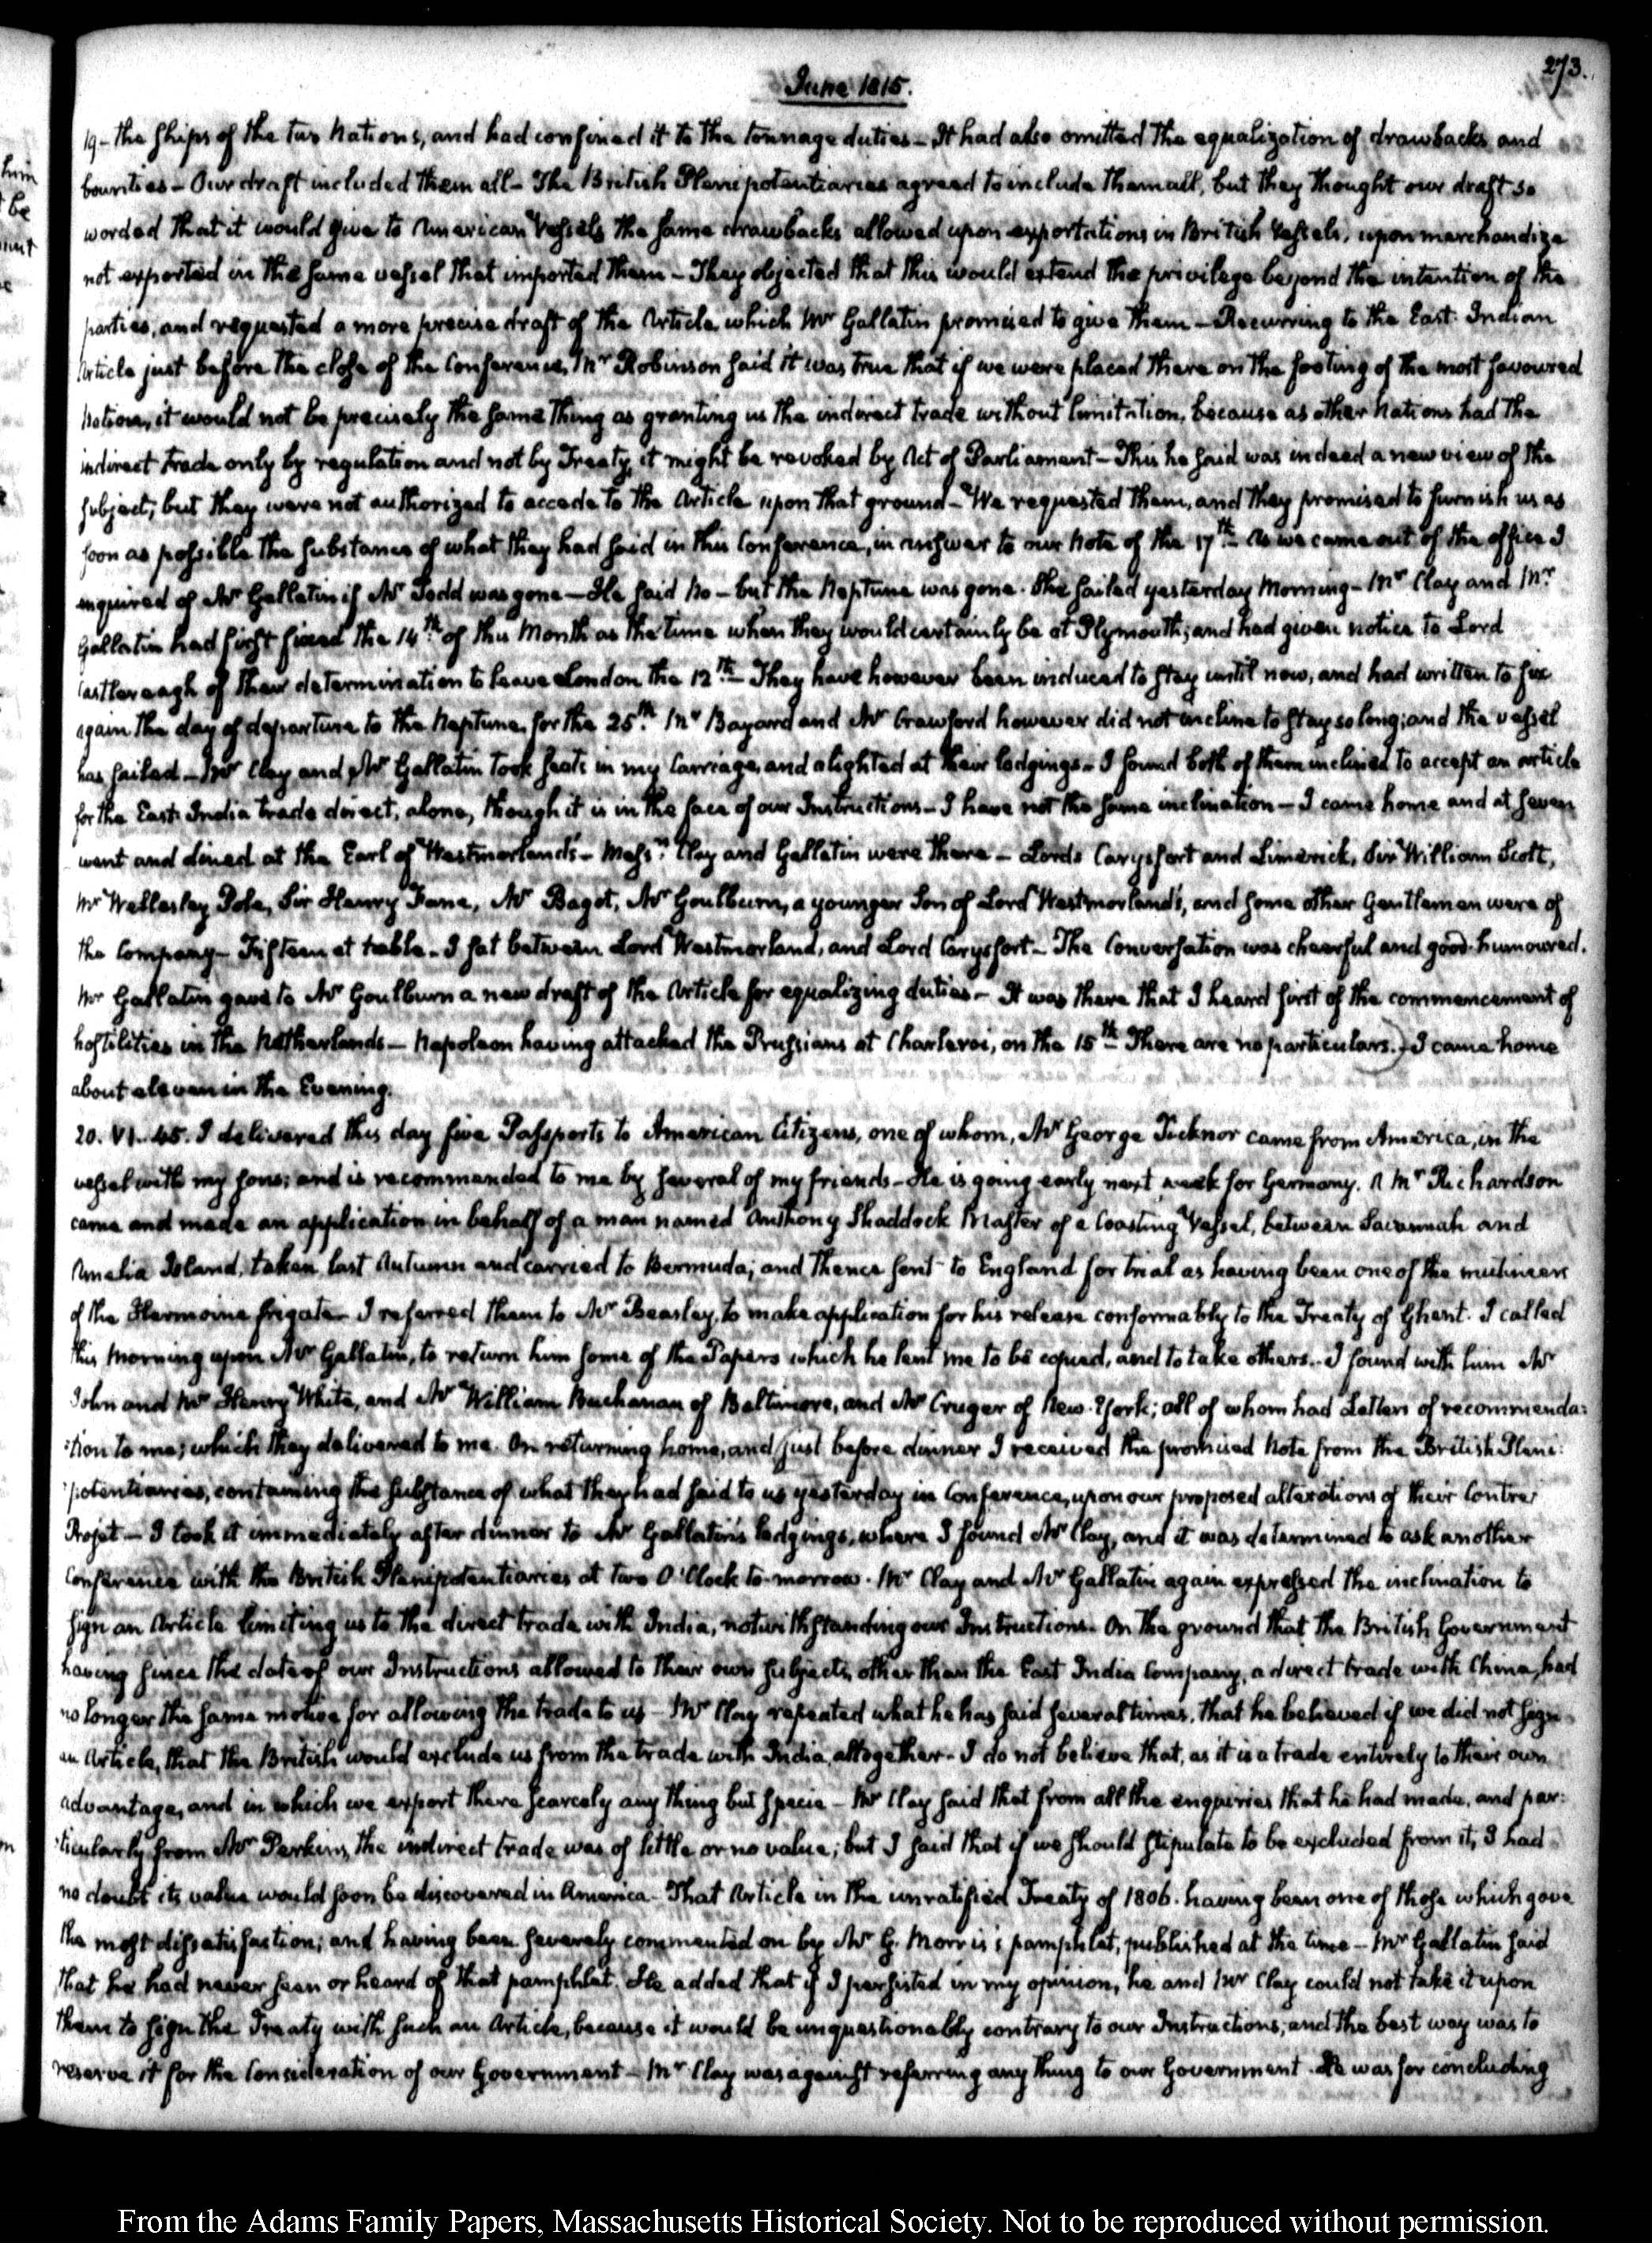 273.
June 1815.
19 – the Ships of the two Nations, and had confined it to the tonnage duties – It had also omitted the equalization of drawbacks and
bounties – Our draft included them all – The British Plenipotentiaries agreed to include them all, but they thought our draft so
worded that it would give to American Vessels the same drawbacks allowed upon exportations in British Vessels, upon merchandize
not exported in the same vessel that imported them – They objected that this would extend the privilege beyond the intention of the
parties, and requested a more precise draft of the Article which Mr Gallatin promised to give them – Recurring to the East Indian
Article just before the close of the Conference, Mr Robinson said it was true that if we were placed there on the footing of the most favoured
Nation, it would not be precisely the same thing as granting us the indirect trade without limitation, because as other Nations had the
indirect trade only by regulation and not by Treaty it might be revoked by Act of Parliament – This he said was indeed a new view of the
subject; but they were not authorized to accede to the Article upon that ground – We requested them, and they promised to furnish us as
soon as possible the substance of what they had said in this Conference, in answer to our Note of the 17th – As we came out of the office I
enquired of Mr Gallatin if Mr Todd was gone – He said no – but the Neptune was gone. She sailed yesterday Morning – Mr Clay and Mr
Gallatin had first fixed the 14th of this Month as the time when they would certainly be at Plymouth; and had given notice to Lord
Castlereagh of their determination to leave London the 12th – They have however been induced to stay until now, and had written to fix
again the day of departure to the Neptune for the 25th. Mr Bayard and Mr Crawford however did not incline to stay so long; and the vessel
has sailed – Mr Clay and Mr Gallatin took seats in my Carriage, and alighted at their lodgings – I found both of them inclined to accept an article
for the East India trade direct, alone, though it is in the face of our Instructions – I have not the same inclination – I came home and at seven
went and dined at the Earl of Westmorland's – Messrs. Clay and Gallatin were there – Lords Carysfort and Limerick, Sir William Scott,
Mr Wellesley Pole, Sir Henry Fane, Mr Bagot, Mr Goulburn, a younger Son of Lord Westmorland's, and some other Gentlemen were of
the Company – Fifteen at table – I sat between Lord Westmorland, and Lord Carysfort – The Conversation was cheerful and good-humoured.
Mr Gallatin gave to Mr Goulburn a new draft of the Article for equalizing duties – It was there that I heard first of the commencement of
hostilities in the Netherlands – Napoleon having attacked the Prussians at Charleroi, on the 15th There are no particulars.) I came home
about eleven in the Evening.
20. VI..45. I delivered this day five Passports to American Citizens, one of whom, Mr George Ticknor came from America, in the
vessel with my sons; and is recommended to me by several of my friends – He is going early next week for Germany. A Mr Richardson
came and made an application in behalf of a man named Anthony Shaddock Master of a Coasting Vessel, between Savannah and
Amelia Island, taken last Autumn and carried to Bermuda; and thence sent to England for trial as having been one of the mutineers
of the Hermoine frigate – I referred them to Mr Beasley, to make application for his release conformably to the Treaty of Ghent. I called
this Morning upon Mr Gallatin, to return him some of the Papers which he lent me to be copied, and to take others. I found with him Mr
John and Mr Henry White, and Mr William Buchanan of Baltimore, and Mr Cruger of New-York; all of whom had Letters of recommenda:
:tion to me; which they delivered to me. On returning home, and just before dinner I received the promised Note from the British Pleni:
:potentiaries, containing the substance of what they had said to us yesterday in Conference, upon our proposed alterations of their Contre
Projet – I took it immediately after dinner to Mr Gallatin's lodgings, where I found Mr Clay, and it was determined to ask another
Conference with the British Plenipotentiaries at two O'Clock to-morrow. Mr Clay and Mr Gallatin again expressed the inclination to
sign an Article limiting us to the direct trade with India, notwithstanding our Instructions. On the ground that the British Government
having since the date of our Instructions allowed to their own subjects, other than the East India Company, a direct trade with China, had
no longer the same motive for allowing the trade to us – Mr Clay repeated what he has said several times, that he believed if we did not sign
an Article, that the British would exclude us from the trade with India altogether – I do not believe that, as it is a trade entirely to their own
advantage, and in which we export there scarcely any thing but specie – Mr Clay said that from all the enquiries that he had made, and par:
:ticularly from Mr Perkins, the indirect trade was of little or no value; but I said that if we should stipulate to be excluded from it, I had
no doubt its value would soon be discovered in America – That Article in the unratified Treaty of 1806. having been one of those which gave
the most dissatisfaction; and having been severely commented on by Mr G. Morris's pamphlet, published at the time – Mr Gallatin said
that he had never seen or heard of that pamphlet. He added that if I persisted in my opinion, he and Mr Clay could not take it upon
them to sign the Treaty with such an Article, because it would be unquestionably contrary to our Instructions, and the best way was to
reserve it for the Consideration of our Government – Mr Clay was against referring any thing to our Government. He was for concluding
From the Adams Family Papers, Massachusetts Historical Society. Not to be reproduced without permission.